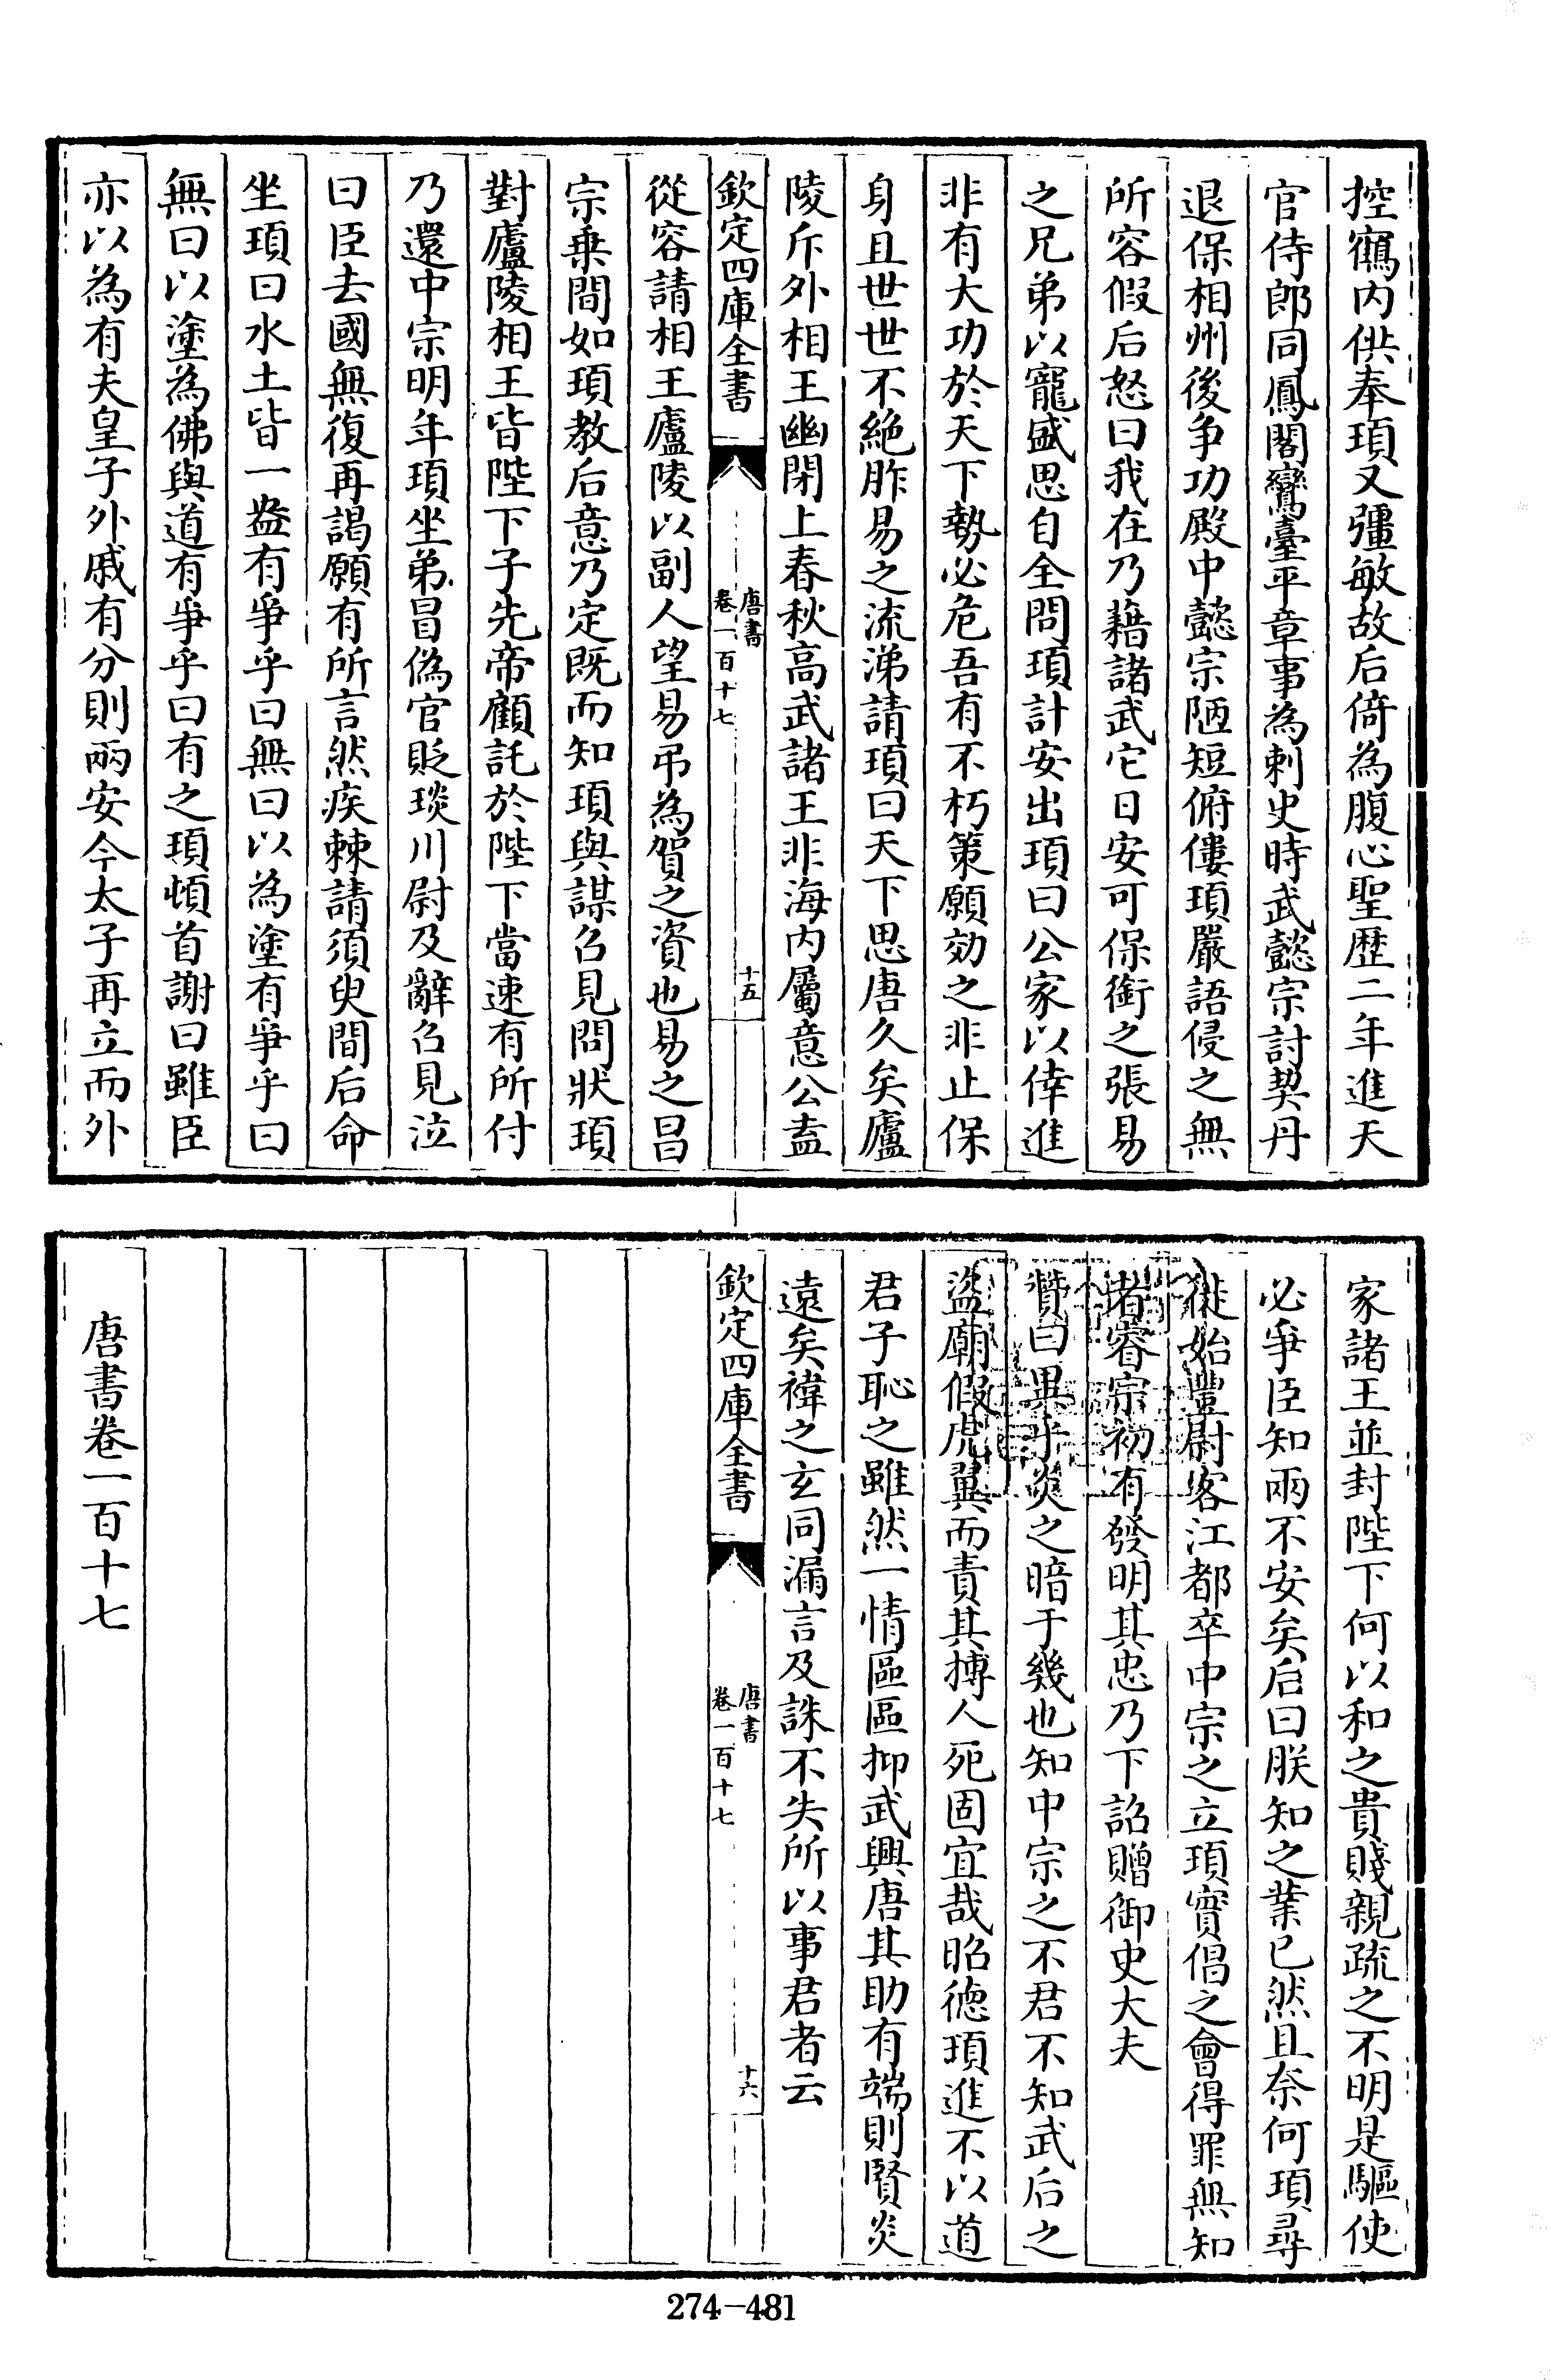 控鶴内供奉頊又彊敏故后倚為腹心聖歴二年進天
官侍郎同鳳閣鸞臺平章事為刺史時武懿宗討契丹
退保相州後争功殿中懿宗陋短俯僂頊嚴語侵之無
所容假后怒曰我在乃藉諸武它日安可保銜之張易
之兄弟以寵盛思自全問頊計安出頊曰公家以倖進
非有大功於天下勢必危吾有不朽策願効之非止保
身且世世不絶胙易之流涕請頊曰天下思唐久矣廬
陵斥外相王幽閉上春秋高武諸王非海内屬意公盍
欽定四庫全書
唐書
卷一百十七
十五
從容請相王廬陵以副人望易弔為賀之資也易之昌
宗乗間如頊教后意乃定既而知頊與謀召見問狀頊
對廬陵相王皆陛下子先帝顧託於陛下當速有所付
乃還中宗明年頊坐弟冒偽官貶琰川尉及辭召見泣
曰臣去國無復再謁願有所言然疾棘請須臾間后命
坐頊曰水土皆一盎有爭乎曰無曰以為塗有爭乎曰
無曰以塗為佛與道有爭乎曰有之頊頓首謝曰雖臣
亦以為有夫皇子外戚有分則兩安今太子再立而外
家諸王並封陛下何以和之貴賤親疏之不明是驅使
必爭臣知兩不安矣后曰朕知之業已然且奈何頊尋
徙始豐尉客江都卒中宗之立頊實倡之會得罪無知
者睿宗初有發明其忠乃下詔贈御史大夫
贊曰異乎炎之暗于幾也知中宗之不君不知武后之
盜廟假虎翼而責其搏人死固宜哉昭德頊進不以道
君子恥之雖然一情區區抑武興唐其助有端則賢炎
遠矣褘之玄同漏言及誅不失所以事君者云
欽定四庫全書
唐書
卷一百十七
十六
唐書卷一百十七
274-481